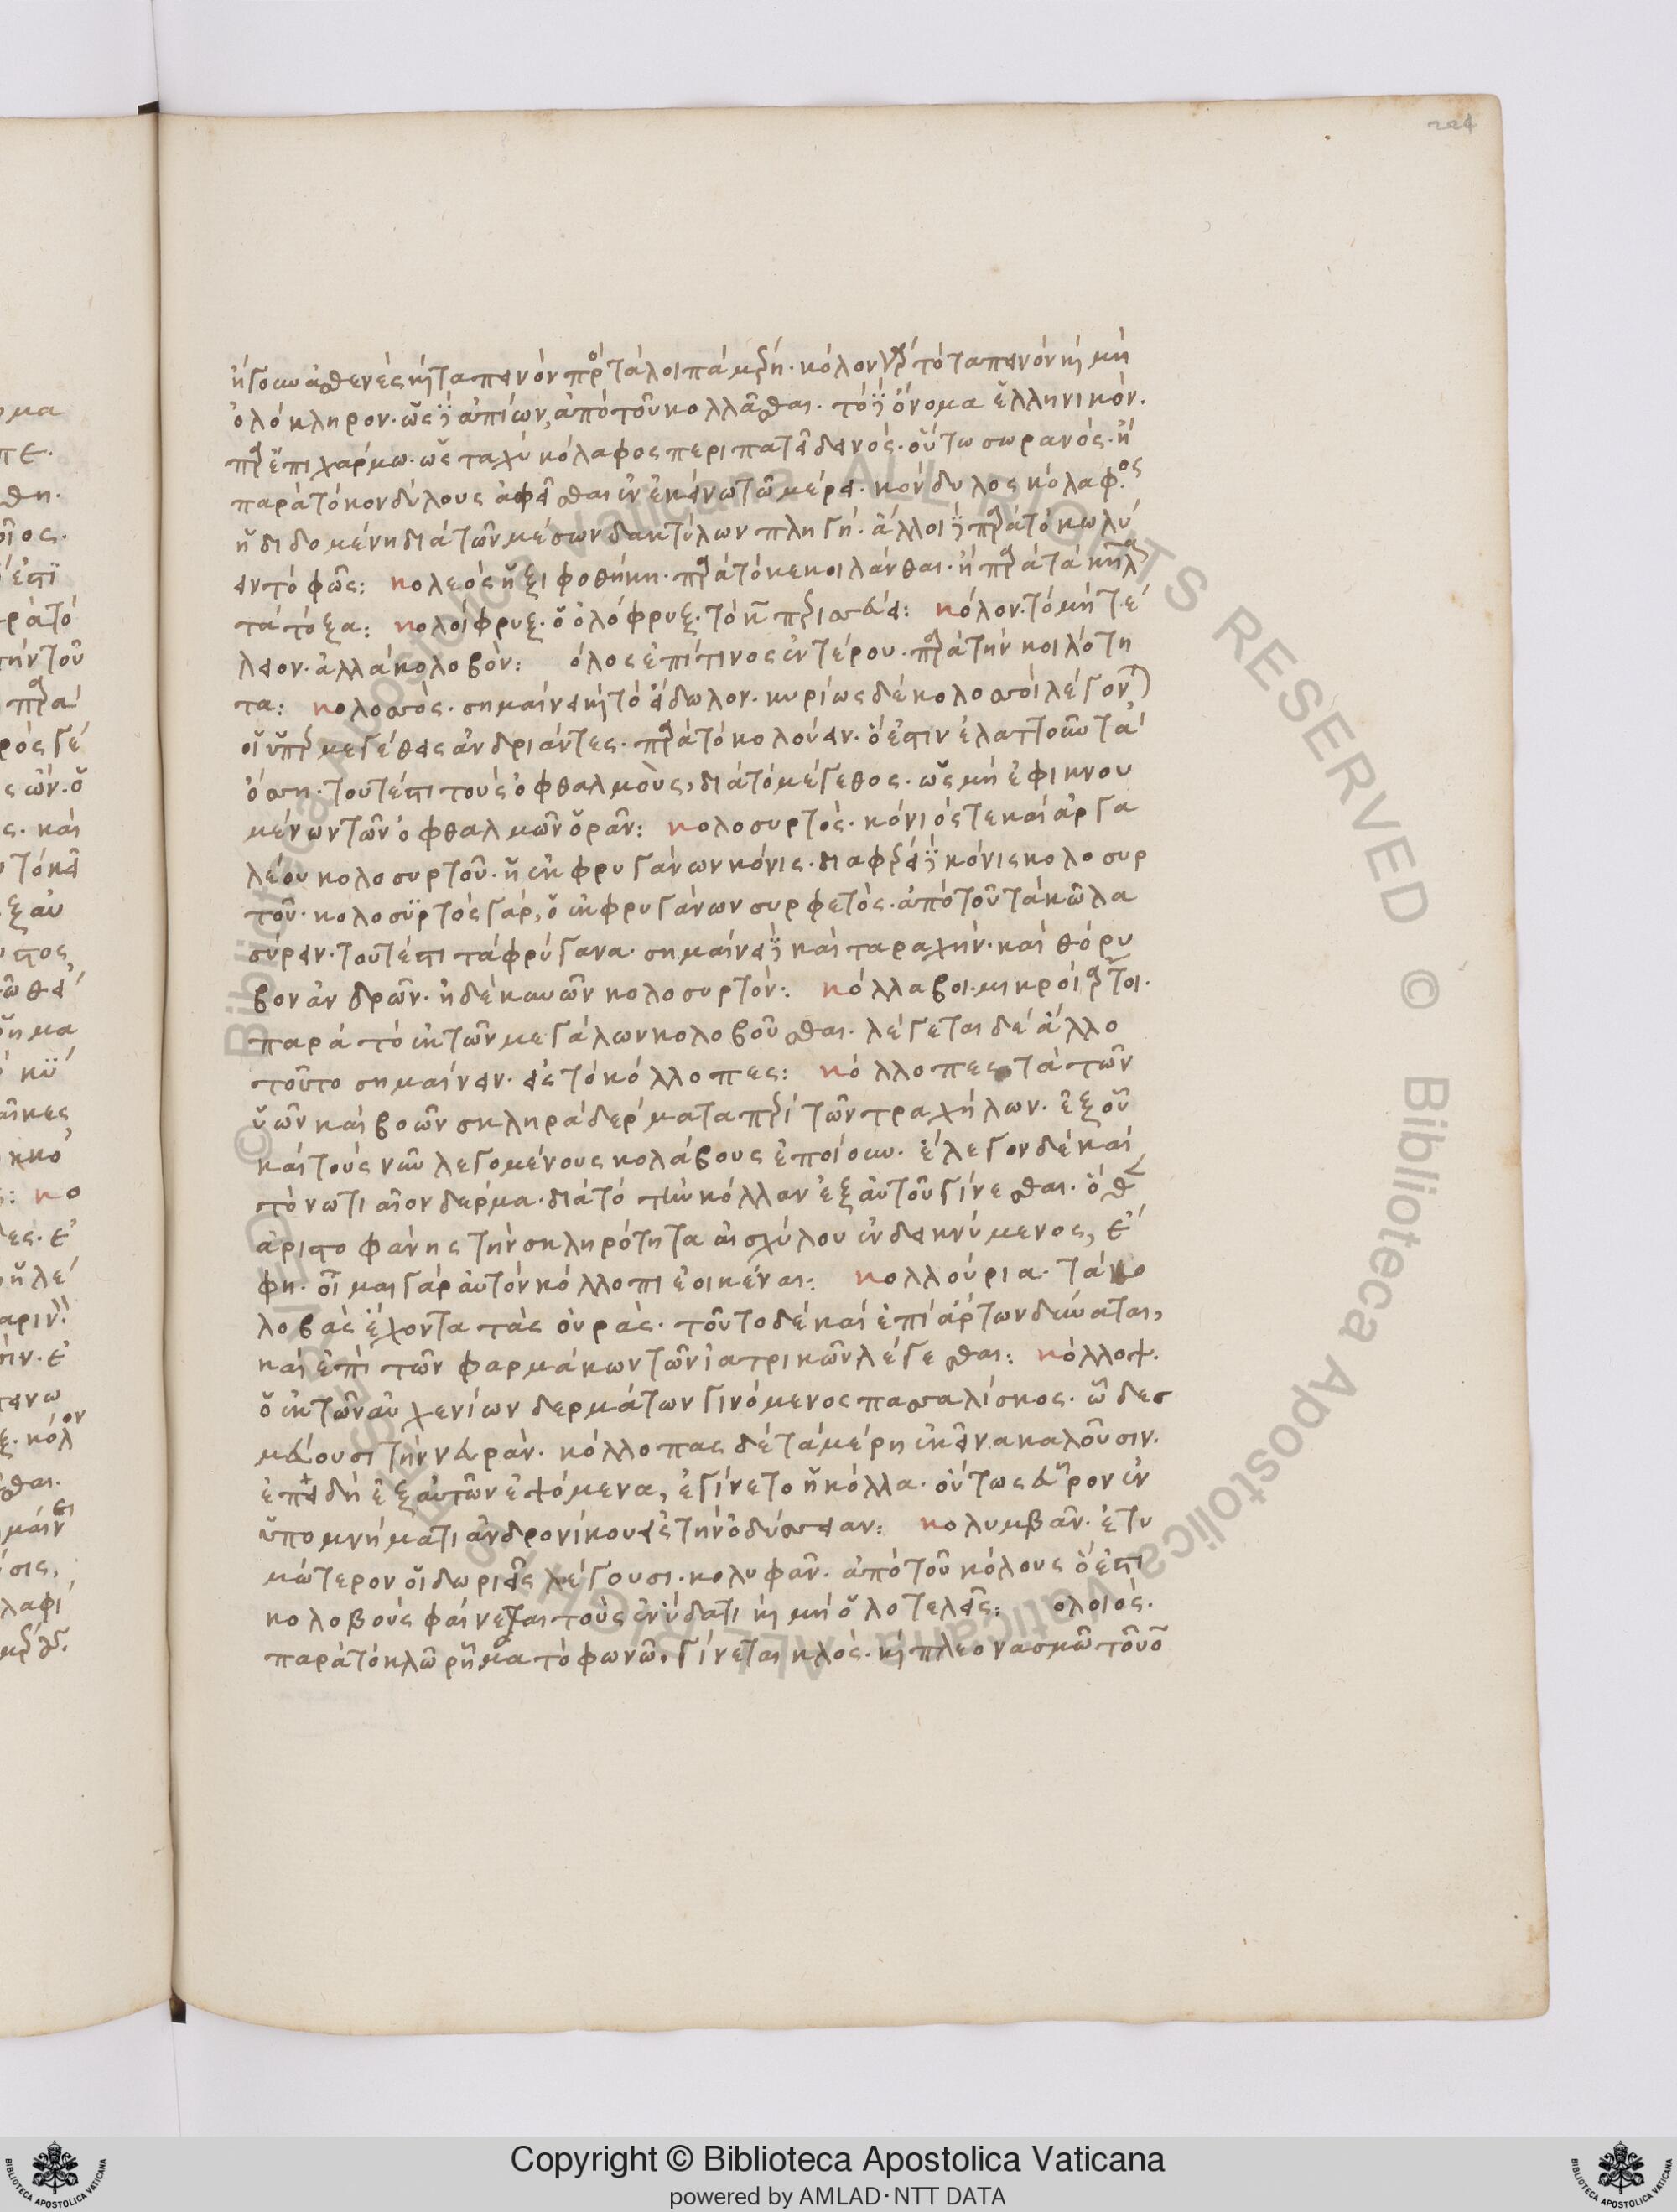 224
ἤγουν ἀσθενὲς καὶ ταπεινὸν πρὸς τὰ λοιπὰ μέρη. κόλον γὰρ τὸ ταπεινὸν καὶ μὴ
ὁλόκληρον. ὡς δὲ ἀπίων, ἀπὸ τοῦ κολλᾶσθαι. τὸ δὲ ὄνομα ἑλληνικόν.
παρ' ἐπιχάρμω. ὡς ταχὺ κόλαφος περιπατεῖ δεινός. οὕτω σωρανός. ἢ
παρὰ τὸ κονδύλους ἀφεῖσθαι ἐν ἐκείνω τῶ μέρει. κόνδυλος κόλαφος
ἡ διδομένη διὰ τῶν μέσων δακτύλων πληγή. ἄλλοι δὲ παρὰ τὸ κωλύ
ειν τὸ φῶς: κολεὸς ἡ ξιφοθήκη. παρὰ τὸ κεκοιλάνθαι. ἢ παρὰ τὰ κῆλα
τὰ τόξα: κολοίφρυξ. ὁ ὁλόφρυξ. τὸ κ περισσεύει: κόλον. τὸ μὴ τέ
λειον. ἀλλὰ κολοβόν: όλος ἐπί τινος ἐντέρου. παρὰ τὴν κοιλότη
τα: κολοσσός. σημαίνει καὶ τὸ εἴδωλον. κυρίως δὲ κολοσσοὶ λέγονται
οἱ ὑπερμεγέθεις ἀνδριάντες. παρὰ τὸ κολούειν. ὅ ἐστιν ἐλαττοῦν τὰ
ὄσση. τουτέστι τοὺς ὀφθαλμοὺς, διὰ τὸ μέγεθος. ὡς μὴ ἐφικνου
μένων τῶν ὀφθαλμῶν ὁρᾶν: κολοσυρτός. κόνιός τε καὶ ἀργα
λέου κολοσυρτοῦ. ἡ ἐκ φρυγάνων κόνις. διαφέρει δὲ κόνις κολοσυρ
τοῦ. κολοσυρτὸς γὰρ, ὁ ἐκ φρυγάνων συρφετός. ἀπὸ τοῦ τὰ κῶλα
σύρειν. τουτέστι τὰ φρύγανα. σημαίνει δὲ καὶ ταραχήν. καὶ θόρυ
βον ἀνδρῶν. ἠδὲ κυνῶν κολοσυρτόν: κόλλαβοι. μικροὶ ἄρτοι.
παρὰ τὸ ἐκ τῶν μεγάλων κολοβοῦσθαι. λέγεται δὲ ἄλλο
τοῦτο σημαίνειν. εἰς τὸ κόλλοπες: κόλλοπες τὰ τῶν
ὑῶν καὶ βοῶν σκληρὰ δέρματα περὶ τῶν τραχήλων. ἐξ οὗ
καὶ τοὺς νῦν λεγομένους κολάβους ἐποίουν. ἔλεγον δὲ καὶ
τὸ νωτιαῖον δέρμα. διὰ τὸ τὴν κόλλαν ἐξ αὐτοῦ γίνεσθαι. ὅθεν
ἀριστοφάνης τὴν σκληρότητα αἰσχύλου ἐνδεικνύμενος, ἔ
φη. οἶμαι γὰρ αὐτὸν κόλλοπι ἐοικέναι: κολλούρια. τὰ κο
λοβὰς ἔχοντα τὰς οὐράς. τοῦτο δὲ καὶ ἐπὶ ἄρτων δύναται,
καὶ ἐπὶ τῶν φαρμάκων τῶν ἰατρικῶν λέγεσθαι: κόλλοψ.
ὁ ἐκ τῶν αὐχενίων δερμάτων γινόμενος πασσαλίσκος. ὧ δεσ
μεύουσι τὴν νευράν. κόλλοπας δὲ τὰ μέρη ἐκεῖνα καλοῦσιν.
ἐπειδὴ ἐξ αὐτῶν ἑψόμενα, ἐγίνετο ἡ κόλλα. οὕτως εὗρον ἐν
ὑπομνήματι ἀνδρονίκου εἰς τὴν ὀδύσσειαν: κολυμβᾶν. ἐτυ
μώτερον οἱ δωριεῖς λέγουσι. κολυφᾶν. ἀπὸ τοῦ κόλους ὅ ἐστι
κολοβοὺς φαίνεσθαι τοὺς ἐν ὕδατι καὶ μὴ ὁλοτελεῖς: ολοιός.
παρὰ τὸ κλῶ ῥῆμα τὸ φωνῶ. γίνεται κλός. καὶ πλεονασμῶ τοῦ ο
Copyright © Biblioteca Apostolica Vaticana
powered by AMLAD·NTT DATA